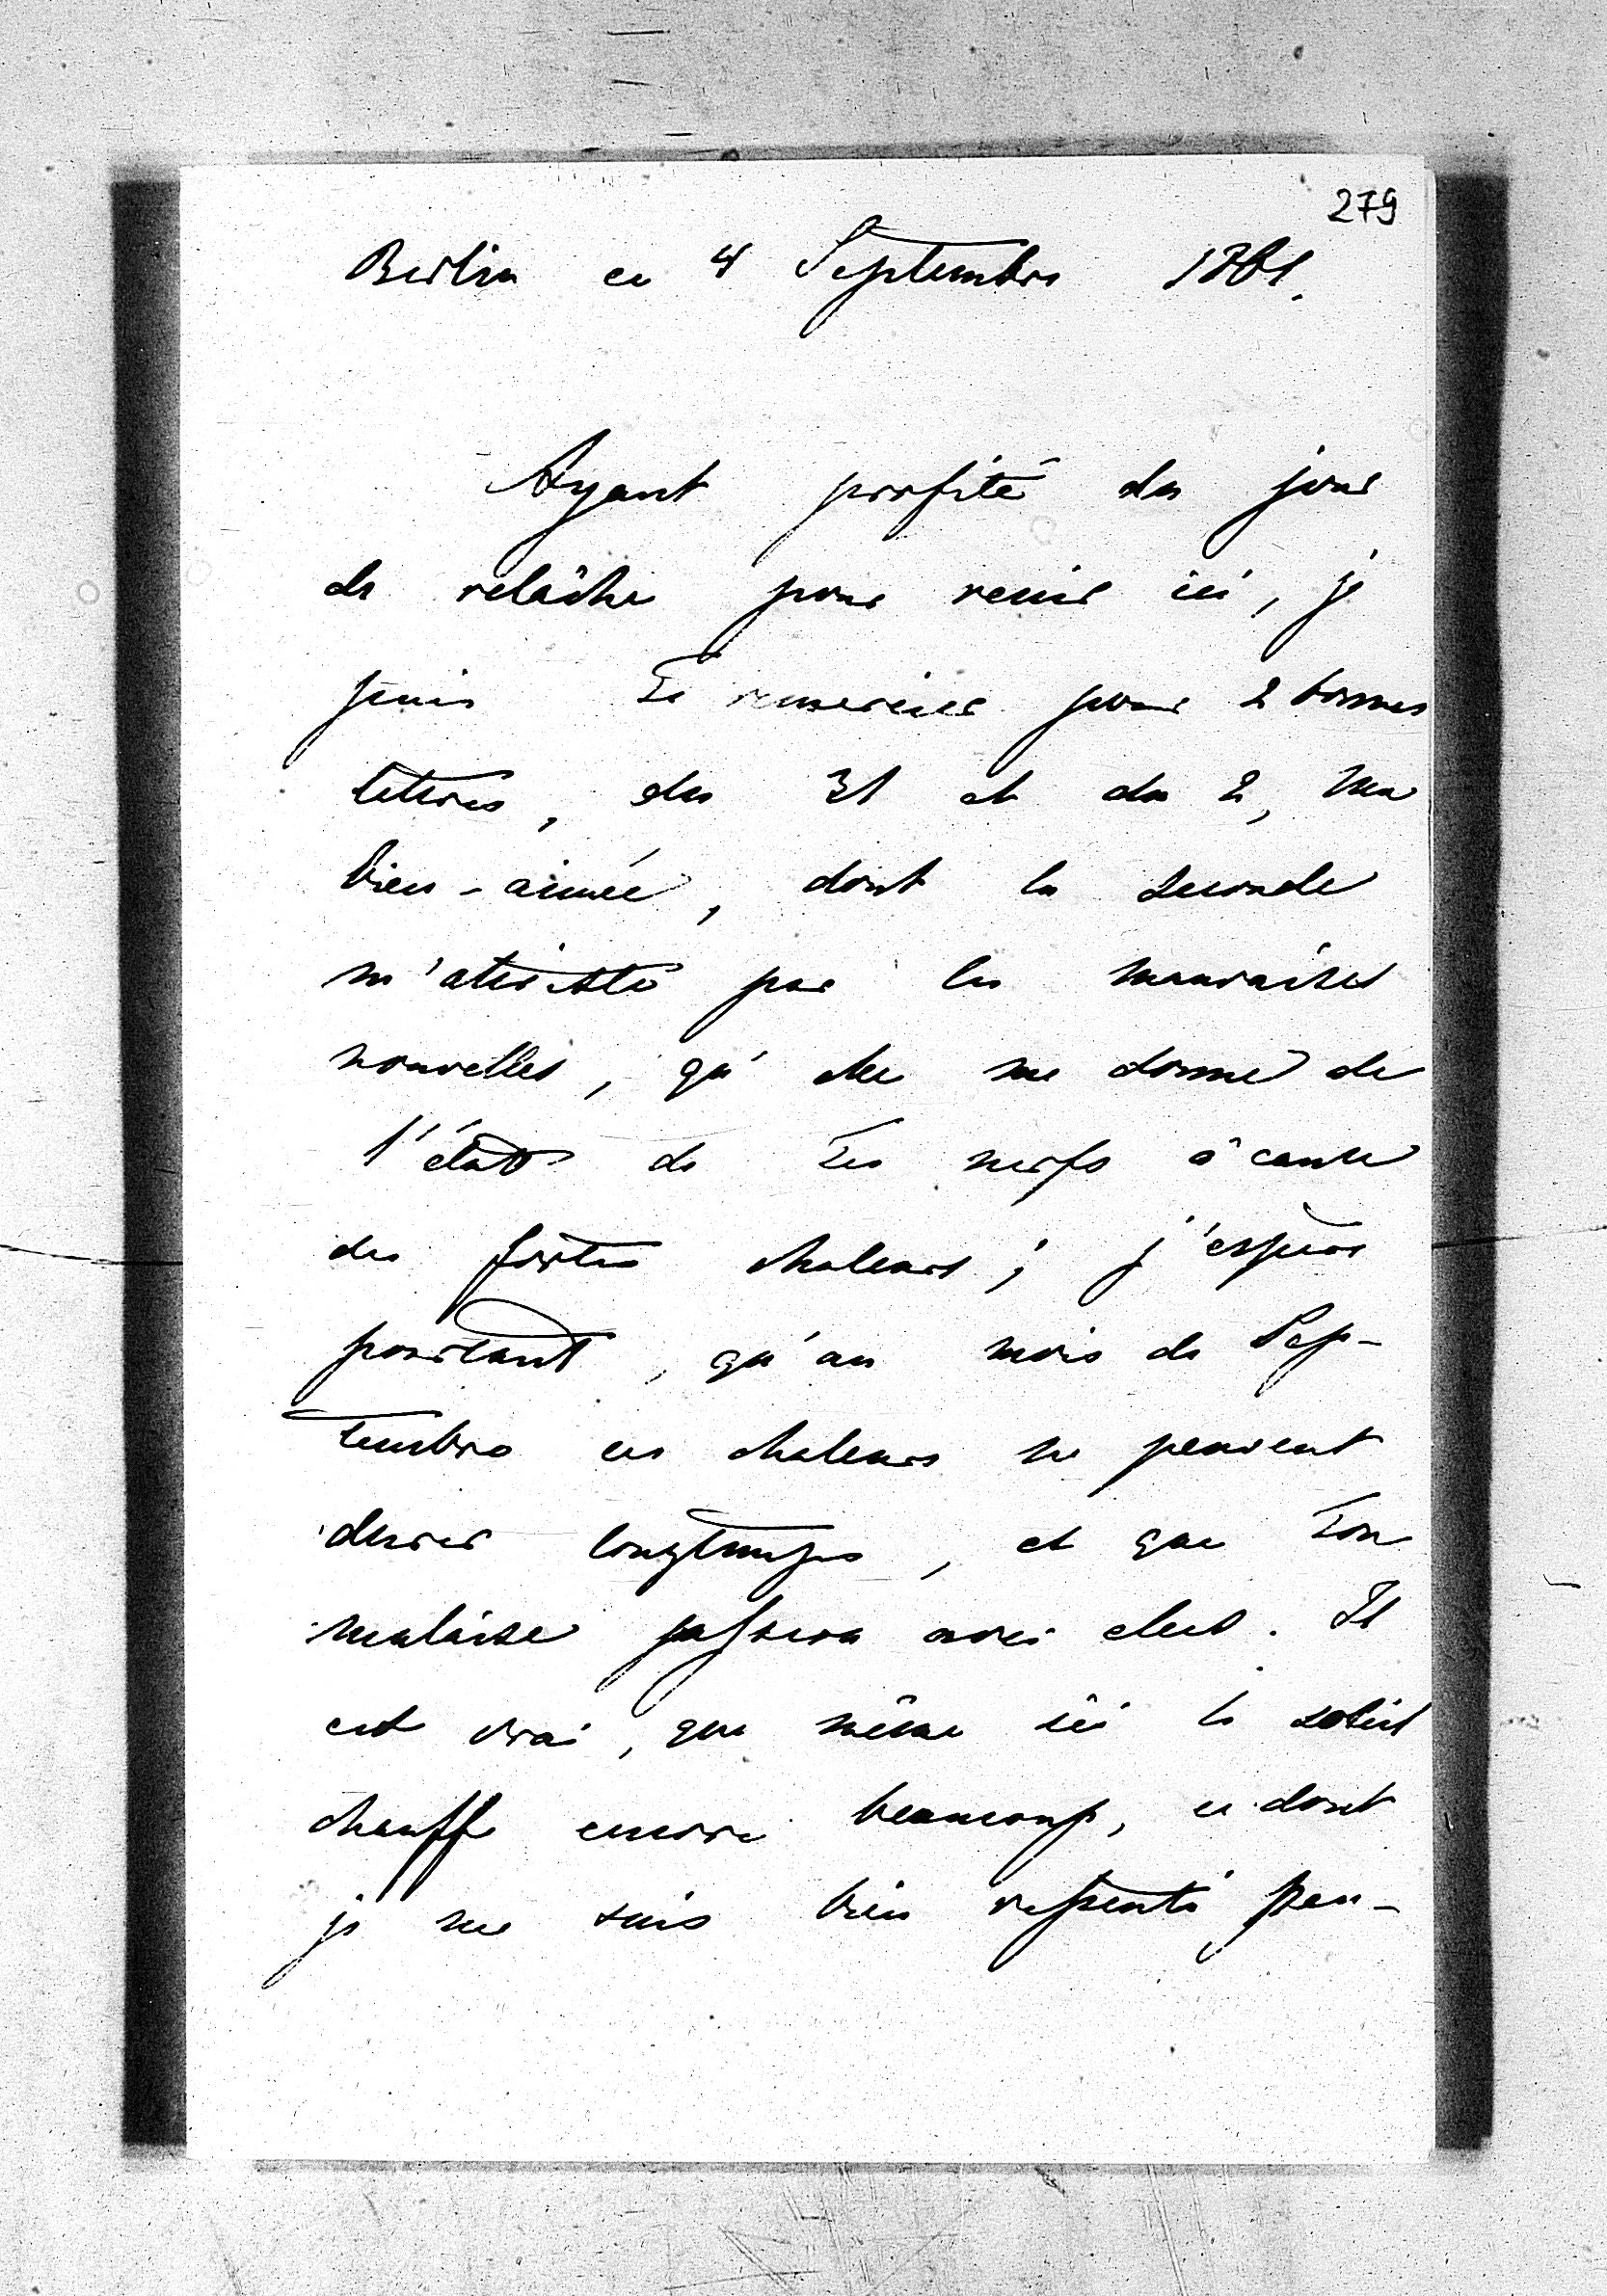 279
Berlin ce 4 Septembre 1881.
Ayant profité du jour
de relâche pour venir ici, je
puis Te remercier pour 2 bonnes
lettres, du 31 et du 2, ma
bien-aimée, dont la seconde
m'attriste par les mauvaises
nouvelles, qu'elle me donne de
l'état de Tes nerfs à cause
des fortes chaleurs; j'espère
pourtant, qu'au mois de Sep-
tembre ces chaleurs ne peuvent
durer longtemps, et que Ton
malaise passera avec elles. Il
est vrai, que même ici le soleil
chauffe encore beaucoup, ce dont
je me suis bien ressenti pen-